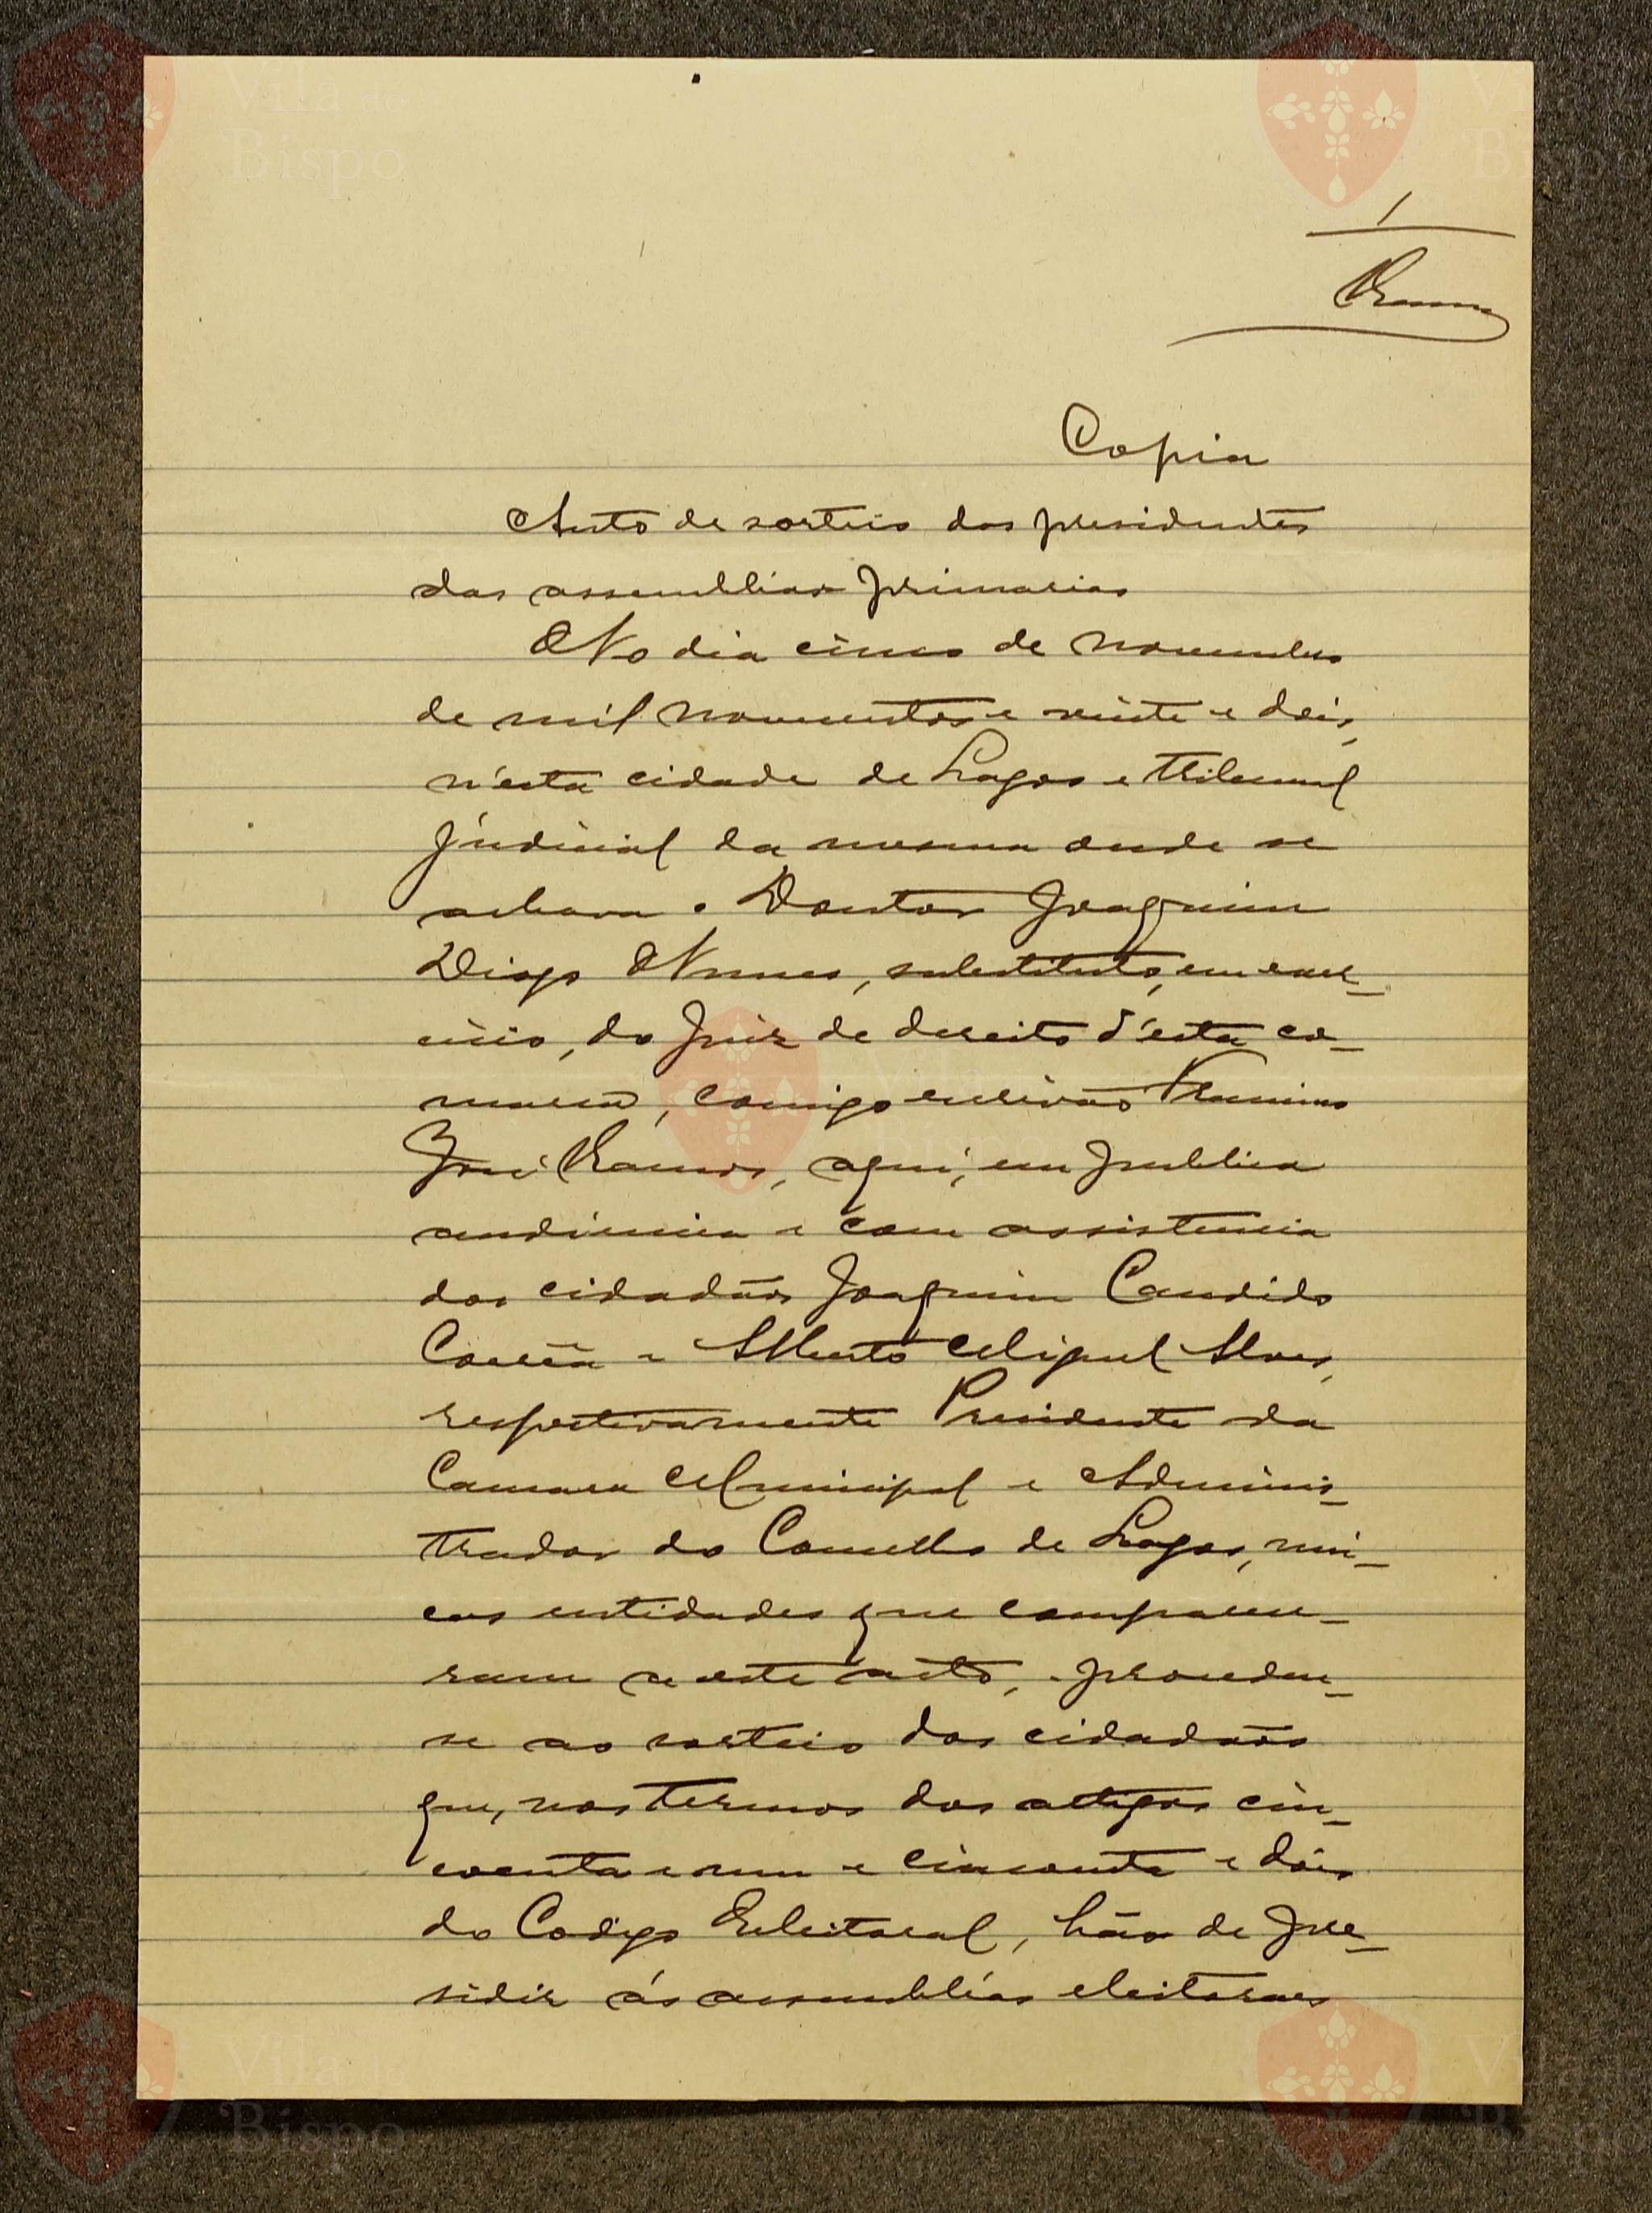 1
Ramos
Copia
Auto de sorteio dos presidentes
das assembleias primarias
No dia cinco de novembro
de mil novecentos e vinte e dois,
n'esta cidade de Lagos e tribunal
judicial da mesma onde se
achava o Doutor Joaquim
Diogo Nunes, substituto, em exer-
cicio, do Juiz de direito d'esta co-
marca, comigo escrivão
José Ramos, aqui, em publica
audiencia e com assistencia
dos cidadãos Joaquim Candido
Corrêa e Alberto Miguel Alves,
respectivamente Presidente da
Camara Municipal e Adminis-
trador do Concelho de Lagos, uni-
cas entidades que compare-
ram a este acto, procedeu-
se ao sorteio dos cidadãos
que, nos termos dos artigos cin-
coenta e um e cincoenta e dois
do Codigo Eleitoral, hão de pre-
sidir ás assembléas eleitoraes
Vila do
Bispo
Vila do
Bispo